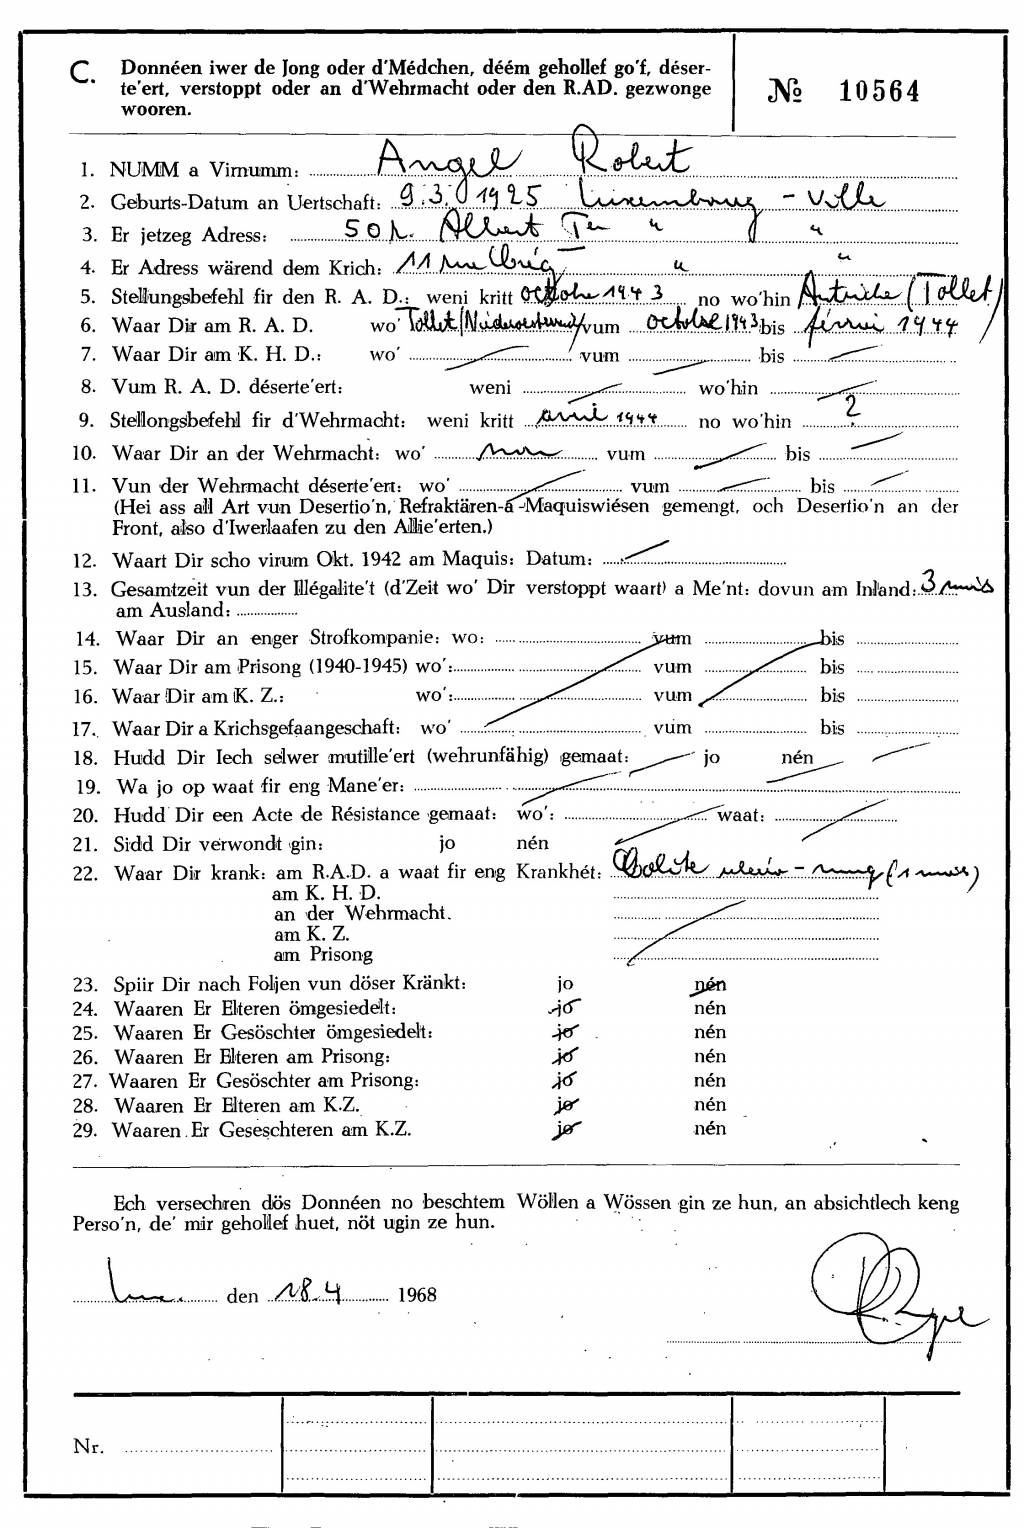 C. Donnéen iwer de Jong oder d'Médchen, déém gehollef go'f, déser-
te'ert, verstoppt oder an d'Wehrmacht oder den R.AD. gezwonge
wooren.
№ 10564
1. NUMM a Virnumm: Angel Robert
2. Geburts-Datum an Uertschaft: 9.3.1925 Luxembourg - Ville
3. Er jetzeg Adress: 50 r. Albert Ier " "
4. Er Adress wärend dem Krich: 11 rue " "
5. Stellungsbefehl fir den R. A. D.: weni kritt octobre 1943 no wo'hin Autriche (Tollet)
6. Waar Dir am R. A. D. wo' Tollet/ vum octobre 1943 bis février 1944
7. Waar Dir am K. H. D.: wo' vum bis
8. Vum R. A. D. déserte'ert: weni wo'hin
9. Stellongsbefehl fir d'Wehrmacht: weni kritt avril 1944 no wo'hin ?
10. Waar Dir an der Wehrmacht: wo' non vum bis
11. Vun der Wehrmacht déserte'ert: wo' vum bis
(Hei ass all Art vun Desertio'n, Refraktären-a -Maquiswiésen gemengt, och Desertio'n an der
Front, also d'Iwerlaafen zu den Allie'erten.)
12. Waart Dir scho virum Okt. 1942 am Maquis: Datum:
13. Gesamtzeit vun der Illégalite't (d'Zeit wo' Dir verstoppt waart) a Me'nt: dovun am Inland: 3 mois
am Ausland:
14. Waar Dir an enger Strofkompanie: wo: vum bis
15. Waar Dir am Prisong (1940-1945) wo': vum bis
16. Waar Dir am K. Z.: wo': vum bis
17. Waar Dir a Krichsgefaangeschaft: wo' vum bis
18. Hudd Dir Iech selwer mutille'ert (wehrunfähig) gemaat: jo nén
19. Wa jo op waat fir eng Mane'er:
20. Hudd Dir een Acte de Résistance gemaat: wo': waat:
21. Sidd Dir verwondt gin: jo nén
22. Waar Dir krank: am R.A.D. a waat fir eng Krankhét: Colite (1 mois)
am K. H. D.
an der Wehrmacht.
am K. Z.
am Prisong
23. Spiir Dir nach Foljen vun döser Kränkt: jo nén
24. Waaren Er Elteren ömgesiedelt: jo nén
25. Waaren Er Gesöschter ömgesiedelt: jo nén
26. Waaren Er Elteren am Prisong: jo nén
27. Waaren Er Gesöschter am Prisong: jo nén
28. Waaren Er Elteren am K.Z. jo nén
29. Waaren Er Geseschteren am K.Z. jo nén
Ech versechren dös Donnéen no beschtem Wöllen a Wössen gin ze hun, an absichtlech keng
Perso'n, de' mir gehollef huet, nöt ugin ze hun.
Lux. den 18.4 1968
R. Angel
Nr.